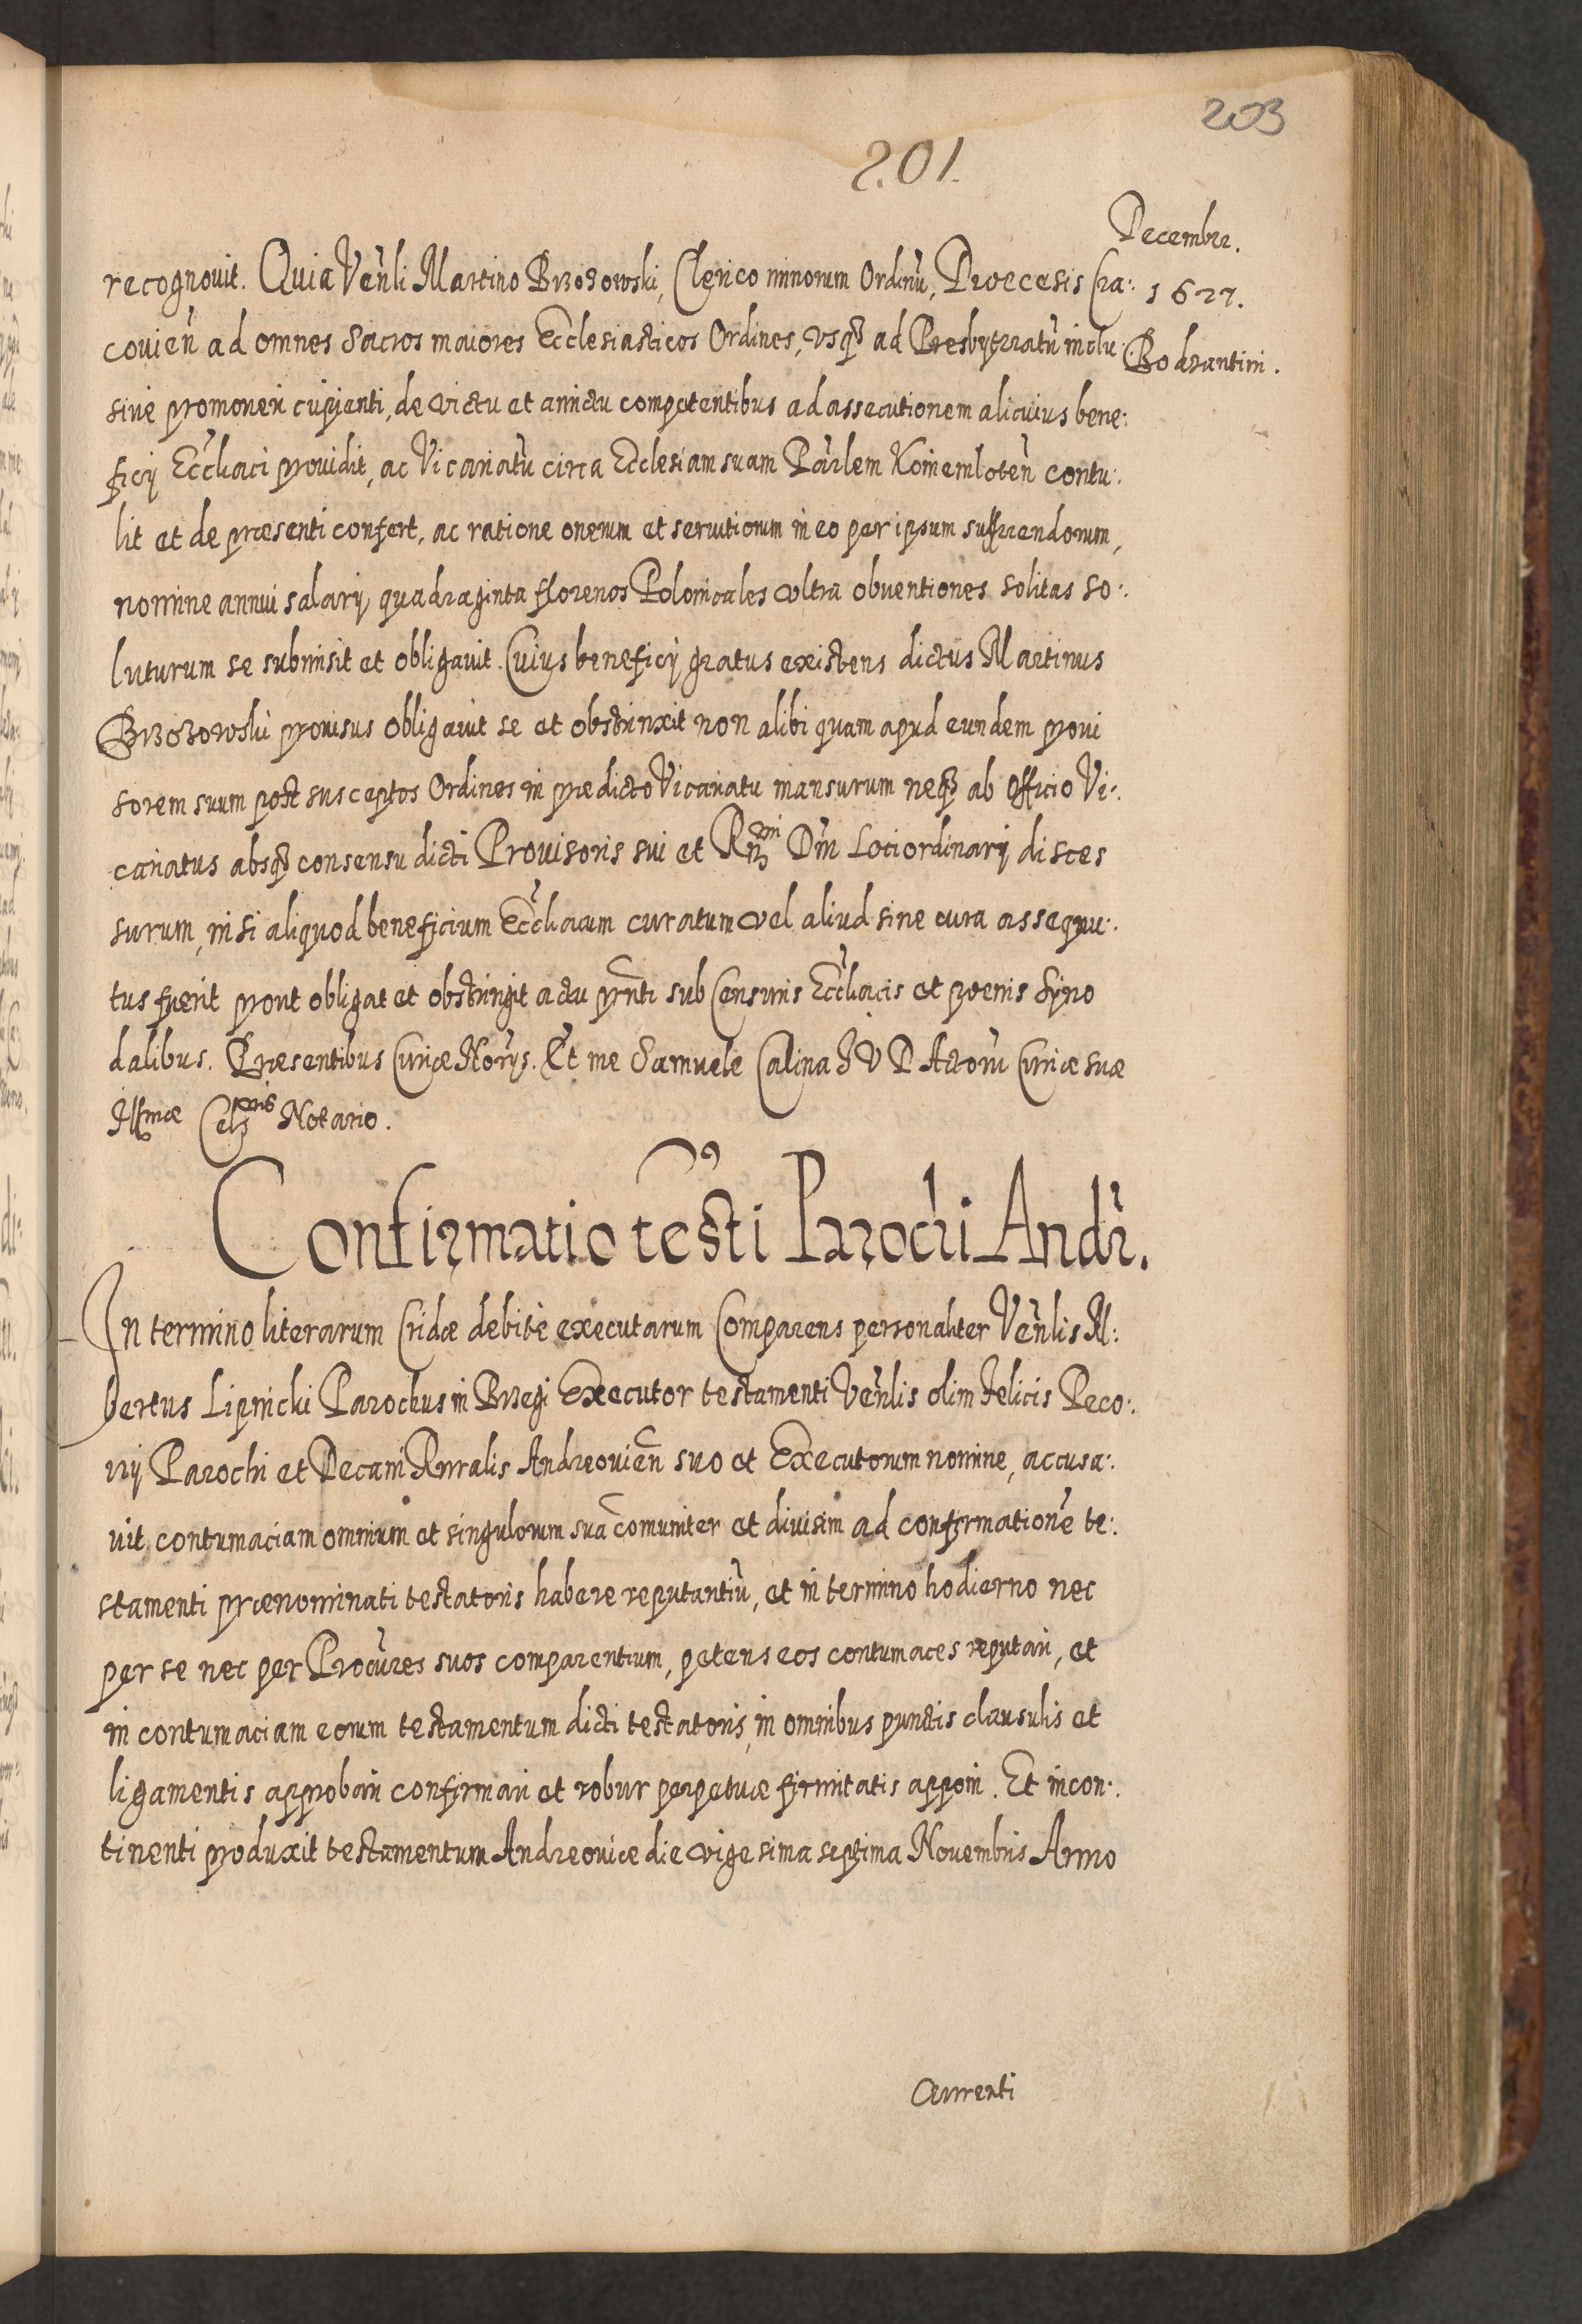 203
201.
Decembre.
1627.
Bodzantini.
recognouit. Quia Venli Martino Brzozowski, Clerico minorum Ordinũ, Dioecesis Cra:
couień ad omnes Sacros maiores Ecclesiasticos Ordines, vsq₃ ad Presbyteratũ inclu
siue promoueri cupienti, de victu et amictu competentibus ad assecutionem alicuius bene:
ficij Eccłiaci prouidit, ac Vicariatũ circa Ecclesiam suam Parlem contu:
lit et de præsenti confert, ac ratione onerum et seruitiorum in eo per ipsum sufferendorum,
nomine annui salarij quadraginta florenos Polonicales vltra obuentiones solitas so:
luturum se submisit et obligauit. Cuius beneficij gratus existens dictus Martinus
Brzozowski prouisus obligauit se et obstrinxit non alibi quam apud eundem proui
sorem suum post susceptos Ordines in predicto Vicariatu mansurum neq₃ ab officio Vi:
cariatus absq₃ consensu dicti Prouisoris sui et Rmi Dni Loci ordinarij disces
surum, nisi aliquod beneficium Eccłiacum curatum vel aliud sine cura assequu:
tus fuerit prout obligat et obstringit actu prnti sub Censuris Eccłiacis et poenis Syno
dalibus. Præsentibus Curiæ Norijs. Et me Samuele Calina I V D Actorũ Curiæ suæ
Illmæ Celsnis Notario.
Confirmatio testi Parochi Andr.
In termino literarum Cridæ debitè executarum Comparens personaliter Venlis Al:
bertus Lipnicki Parochus in Brzegi Executor testamenti Venlis olim Felicis Peco:
rij Parochi et Decani Ruralis Andreouień suo et Executorum nomine, accusa:
uit contumaciam omnium et singulorum sua comuniter et diuisim ad confirmationẽ te:
stamenti prænominati testatoris habere reputantiũ, et in termino hodierno nec
per se nec per Procures suos comparentium, petens eos contumaces reputari, et
in contumaciam eorum testamentum dicti testatoris, in omnibus punctis clausulis et
ligamentis approbari confirmari et robur perpetuæ firmitatis apponi. Et incon:
tinenti produxit testamentum Andreouiæ die vigesima septima Nouembris Anno
Currenti